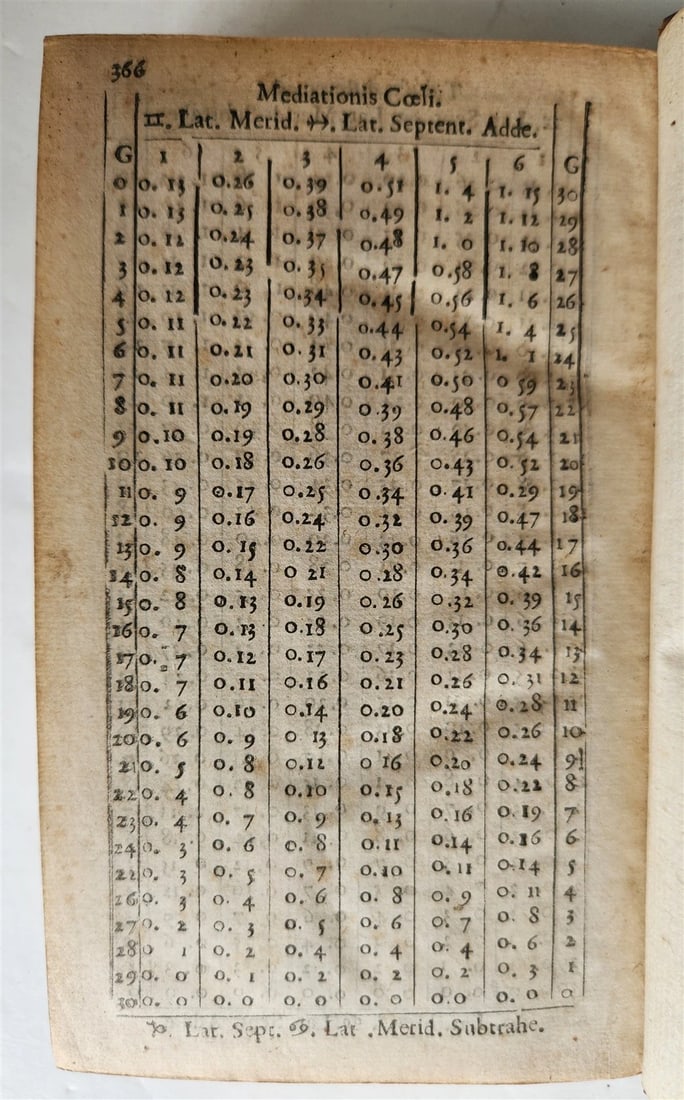 366
Mediationis Cœli.
♊. Lat. Merid. ♐. Lat. Septent. Adde.
G 1 2 3 4 5 6 G
0 0. 13 0.26 0.39 0.51 1. 4 1. 15 30
1 0. 13 0.25 0.38 0.49 1. 2 1. 12 29
2 0. 12 0.24 0.37 0.48 1. 0 1. 10 28
3 0. 12 0.23 0.35 0.47 0.58 1. 8 27
4 0. 12 0.23 0.34 0.45 0.56 1. 6 26
5 0. 11 0.22 0.33 0.44 0.54 1. 4 25
6 0. 11 0.21 0.31 0.43 0.52 1. 1 24
7 0. 11 0.20 0.30 0.41 0.50 0 59 23
8 0. 11 0.19 0.29 0.39 0.48 0.57 22
9 0.10 0.19 0.28 0.38 0.46 0.54 21
10 0. 10 0.18 0.26 0.36 0.43 0.52 20
11 0. 9 0.17 0.25 0.34 0.41 0.29 19
12 0. 9 0.16 0.24 0.32 0.39 0.47 18
13 0. 9 0.15 0.22 0.30 0.36 0.44 17
14 0. 8 0.14 0 21 0.28 0.34 0.42 16
15 0. 8 0.13 0.19 0.26 0.32 0.39 15
16 0. 7 0.13 0.18 0.25 0.30 0.36 14
17 0. 7 0.12 0.17 0.23 0.28 0.34 13
18 0. 7 0.11 0.16 0.21 0.26 0.31 12
19 0. 6 0.10 0.14 0.20 0.24 0.28 11
20 0. 6 0. 9 0 13 0.18 0.22 0.26 10
21 0. 5 0. 8 0.12 0 16 0.20 0.24 9
22 0. 4 0. 8 0.10 0.15 0.18 0.22 8
23 0. 4 0. 7 0. 9 0.13 0.16 0.19 7
24 0. 3 0. 6 0. 8 0.11 0.14 0.16 6
22 0. 3 0. 5 0. 7 0.10 0.11 0.14 5
26 0. 3 0. 4 0. 6 0. 8 0. 9 0. 11 4
27 0. 2 0. 3 0. 5 0. 6 0. 7 0. 8 3
28 0 1 0. 2 0. 4 0. 4 0. 4 0. 6 2
29 0. 0 0. 1 0. 2 0. 2 0. 2 0. 3 1
30 0. 0 0. 0 0. 0 0. 0 0.0 0. 0 0
♑. Lat. Sept. ♋. Lat .Merid. Subtrahe.